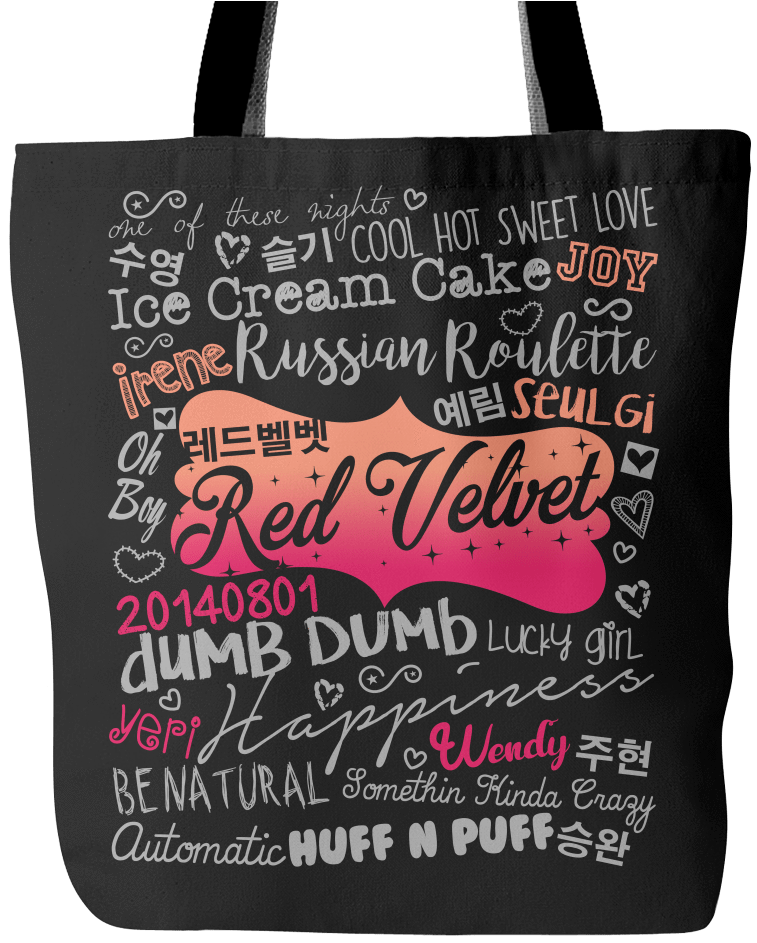 one of these nights
COOL HOT SWEET LOVE
수영
슬기
Ice Cream Cake
JOY
irene
Russian Roulette
예림
SEULGi
레드벨벳
Oh
Boy
Red Velvet
20140801
dUMB DUMb
Lucky girl
yeri
Happiness
Wendy
주현
BE NATURAL
Somethin Kinda Crazy
Automatic
HUFF N PUFF
승완